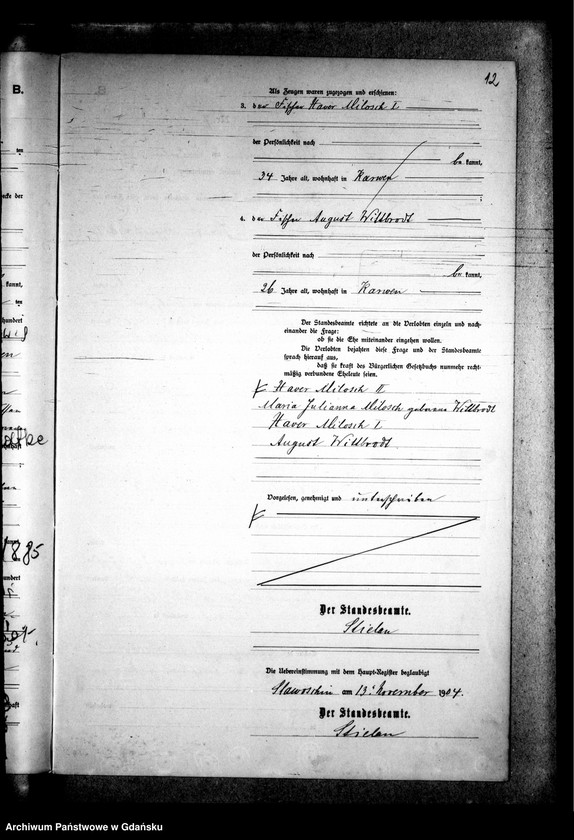 12
Als Zeugen waren zugezogen und erschienen:
3. der Fischer Xaver Milosch I
der Persönlichkeit nach
be kannt,
34 Jahre alt, wohnhaft in Karwen
;
4. der Fischer August Wittbrodt
der Persönlichkeit nach
be kannt,
26 Jahre alt, wohnhaft in Karwen
Der Standesbeamte richtete an die Verlobten einzeln und nach-
einander die Frage:
ob sie die Ehe miteinander eingehen wollen.
Die Verlobten bejahten diese Frage und der Standesbeamte
sprach hierauf aus,
daß sie kraft des Bürgerlichen Gesetzbuchs nunmehr recht-
mäßig verbundene Eheleute seien.
Xaver Milosch II
Maria Julianna Milosch geborene Wittbrodt
Xaver Milosch I.
August Wittbrodt.
Vorgelesen, genehmigt und unterschrieben
Der Standesbeamte.
Die Uebereinstimmung mit dem Haupt-Register beglaubigt
Slawoschin am 13. November 1904.
Der Standesbeamte.
B.
kannt,
hundert
1885
Archiwum Państwowe w Gdańsku